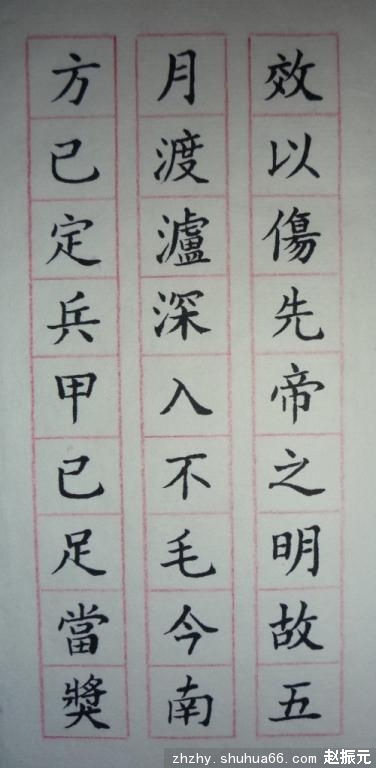 效以傷先帝之明故五
月渡瀘深入不毛今南
方已定兵甲已足當獎
zhzhy.shuhua66.com 赵振元